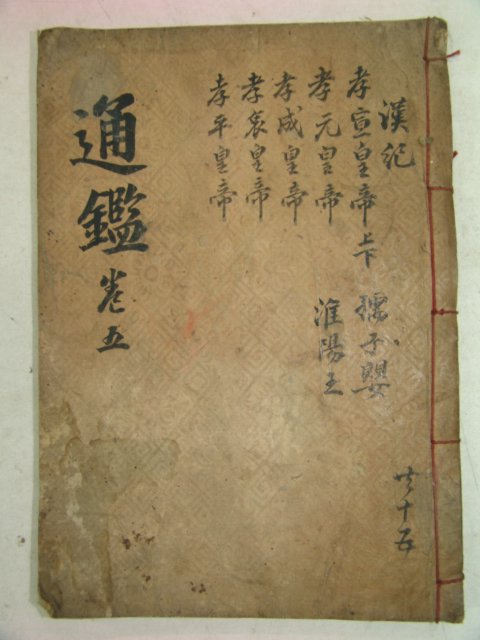 漢紀
孝宣皇帝上下 孺子嬰
孝元皇帝 淮陽王
孝成皇帝
孝哀皇帝
孝平皇帝
通鑑 卷五
共十五